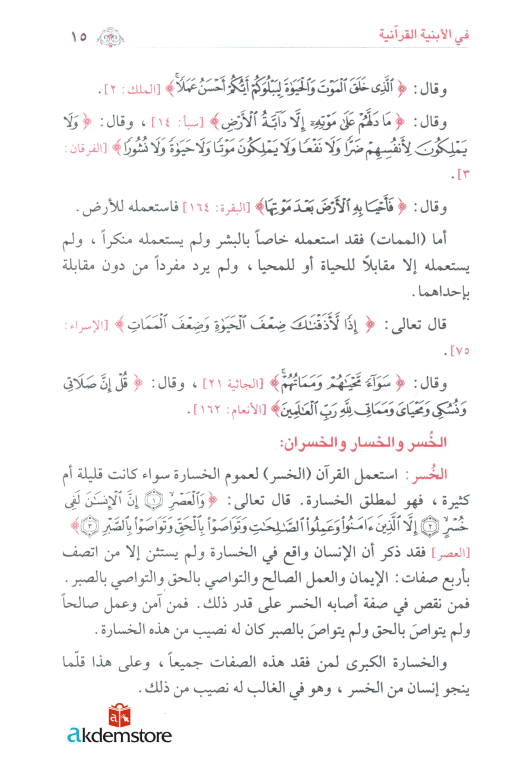 في الأبنية القرآنية ١٥
وقال: ﴿ الَّذِي خَلَقَ الْمَوْتَ وَالْحَيَوٰةَ لِيَبْلُوَكُمْ أَيُّكُمْ أَحْسَنُ عَمَلًا ﴾ [الملك: ٢].
وقال: ﴿ مَا دَلَّهُمْ عَلَىٰ مَوْتِهِۦٓ إِلَّا دَآبَّةُ الْأَرْضِ ﴾ [سبأ: ١٤]، وقال: ﴿ وَلَا
يَمْلِكُونَ لِأَنفُسِهِمْ ضَرًّا وَلَا نَفْعًا وَلَا يَمْلِكُونَ مَوْتًا وَلَا حَيَوٰةً وَلَا نُشُورًا ﴾ [الفرقان:
٣].
وقال: ﴿ فَأَحْيَا بِهِ الْأَرْضَ بَعْدَ مَوْتِهَا ﴾ [البقرة: ١٦٤] فاستعمله للأرض.
أما (الممات) فقد استعمله خاصاً بالبشر ولم يستعمله منكراً، ولم
يستعمله إلا مقابلاً للحياة أو للمحيا، ولم يرد مفرداً من دون مقابلة
بإحداهما.
قال تعالى: ﴿ إِذًا لَّأَذَقْنَاكَ ضِعْفَ الْحَيَوٰةِ وَضِعْفَ الْمَمَاتِ ﴾ [الإسراء:
٧٥].
وقال: ﴿ سَوَآءً مَّحْيَاهُمْ وَمَمَاتُهُمْ ﴾ [الجاثية ٢١]، وقال: ﴿ قُلْ إِنَّ صَلَاتِي
وَنُسُكِي وَمَحْيَايَ وَمَمَاتِي لِلَّهِ رَبِّ الْعَالَمِينَ ﴾ [الأنعام: ١٦٢].
الخُسر والخسار والخسران:
الخُسر: استعمل القرآن (الخسر) لعموم الخسارة سواء كانت قليلة أم
كثيرة، فهو لمطلق الخسارة. قال تعالى: ﴿ وَالْعَصْرِ ۝١ إِنَّ الْإِنسَٰنَ لَفِي
خُسْرٍ ۝٢ إِلَّا الَّذِينَ ءَامَنُوا وَعَمِلُوا الصَّالِحَاتِ وَتَوَاصَوْا بِالْحَقِّ وَتَوَاصَوْا بِالصَّبْرِ ۝٣ ﴾
[العصر] فقد ذكر أن الإنسان واقع في الخسارة ولم يستثن إلا من اتصف
بأربع صفات: الإيمان والعمل الصالح والتواصي بالحق والتواصي بالصبر.
فمن نقص في صفة أصابه الخسر على قدر ذلك. فمن آمن وعمل صالحاً
ولم يتواصَ بالحق ولم يتواصَ بالصبر كان له نصيب من هذه الخسارة.
والخسارة الكبرى لمن فقد هذه الصفات جميعاً، وعلى هذا قلّما
ينجو إنسان من الخسر، وهو في الغالب له نصيب من ذلك.
akdemstore